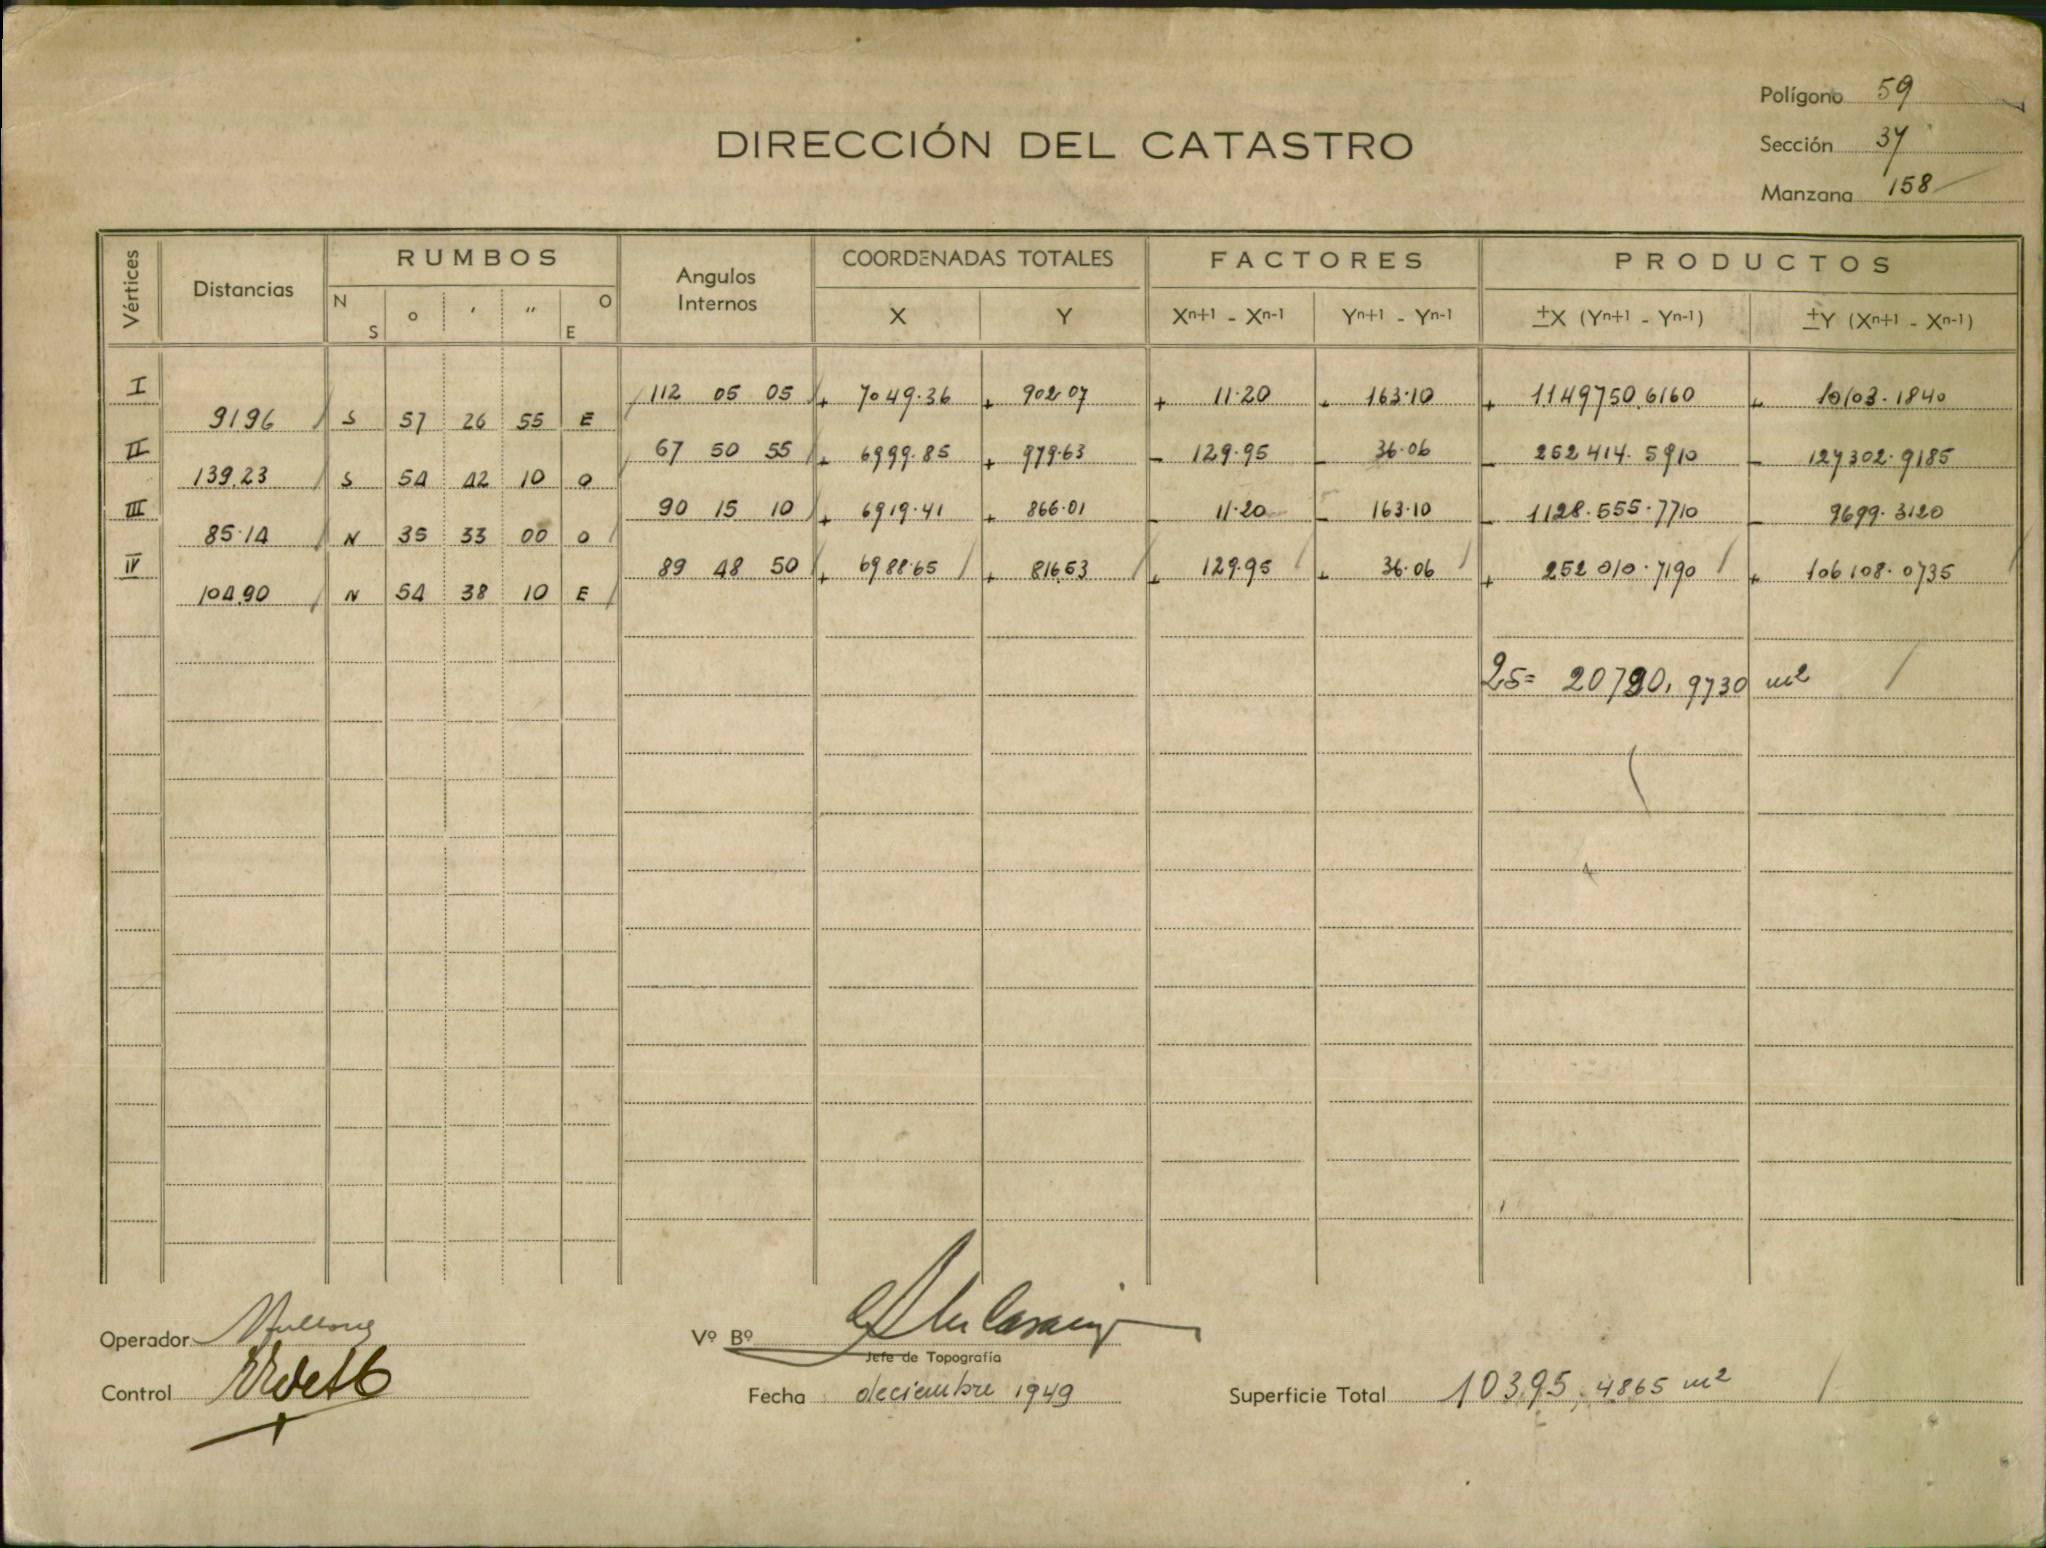 Polígono 59
DIRECCIÓN DEL CATASTRO
Sección 37
Manzana 158
Vértices Distancias RUMBOS Angulos Internos COORDENADAS TOTALES FACTORES PRODUCTOS
N S o ' " O E X Y Xn+1 - Xn-1 Yn+1 - Yn-1 ±X (Yn+1 - Yn-1) ±Y (Xn+1 - Xn-1)
I 112 05 05 + 7049.36 + 902.07 + 11.20 + 163.10 + 1149750.6160 + 10103.1840
91.96 S 57 26 55 E
II 67 50 55 + 6999.85 + 979.63 - 129.95 - 36.06 - 252414.5910 - 127302.9185
139.23 S 54 42 10 O
III 90 15 10 + 6919.41 + 866.01 - 11.20 - 163.10 - 1128.555.7710 - 9699.3120
85.14 N 35 33 00 O
IV 89 48 50 + 6988.65 + 816.53 + 129.95 + 36.06 + 252010.7190 + 106108.0735
104.90 N 54 38 10 E
2S= 20790,9730 m2
Operador
Vº Bº
Jefe de Topografía
Control
Fecha deciembre 1949
Superficie Total 10395,4865 m2